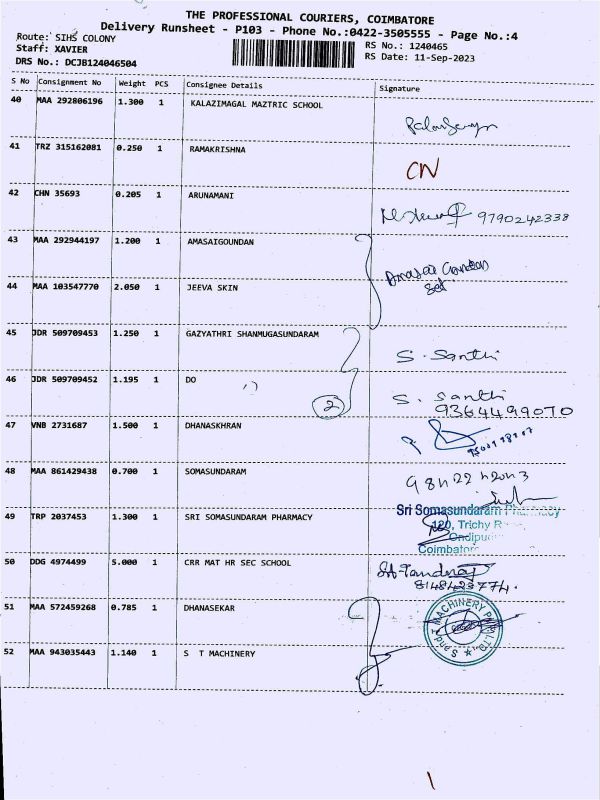 THE PROFESSIONAL COURIERS, COIMBATORE
Delivery Runsheet - P103 - Phone No.:0422-3505555 - Page No.:4
Route: SIHS COLONY
RS No.: 1240465
Staff: XAVIER
RS Date: 11-Sep-2023
DRS No.: DCJB124046504
S No Consignment No Weight PCS Consignee Details Signature
40 MAA 292806196 1.300 1 KALAZIMAGAL MAZTRIC SCHOOL
41 TRZ 315162081 0.250 1 RAMAKRISHNA CN
42 CHN 35693 0.205 1 ARUNAMANI 9790242338
43 MAA 292944197 1.200 1 AMASAIGOUNDAN
44 MAA 103547770 2.050 1 JEEVA SKIN
45 JDR 509709453 1.250 1 GAZYATHRI SHANMUGASUNDARAM S. Santhi
46 JDR 509709452 1.195 1 DO S. Santhi
2 9364499070
47 VNB 2731687 1.500 1 DHANASKHRAN
48 MAA 861429438 0.700 1 SOMASUNDARAM
49 TRP 2037453 1.300 1 SRI SOMASUNDARAM PHARMACY Sri Somasundaram Pharmacy
120, Trichy
Coimbatore
50 DDG 4974499 5.000 1 CRR MAT HR SEC SCHOOL
8148423774.
51 MAA 572459268 0.785 1 DHANASEKAR
MACHINERY
52 MAA 943035443 1.140 1 S T MACHINERY